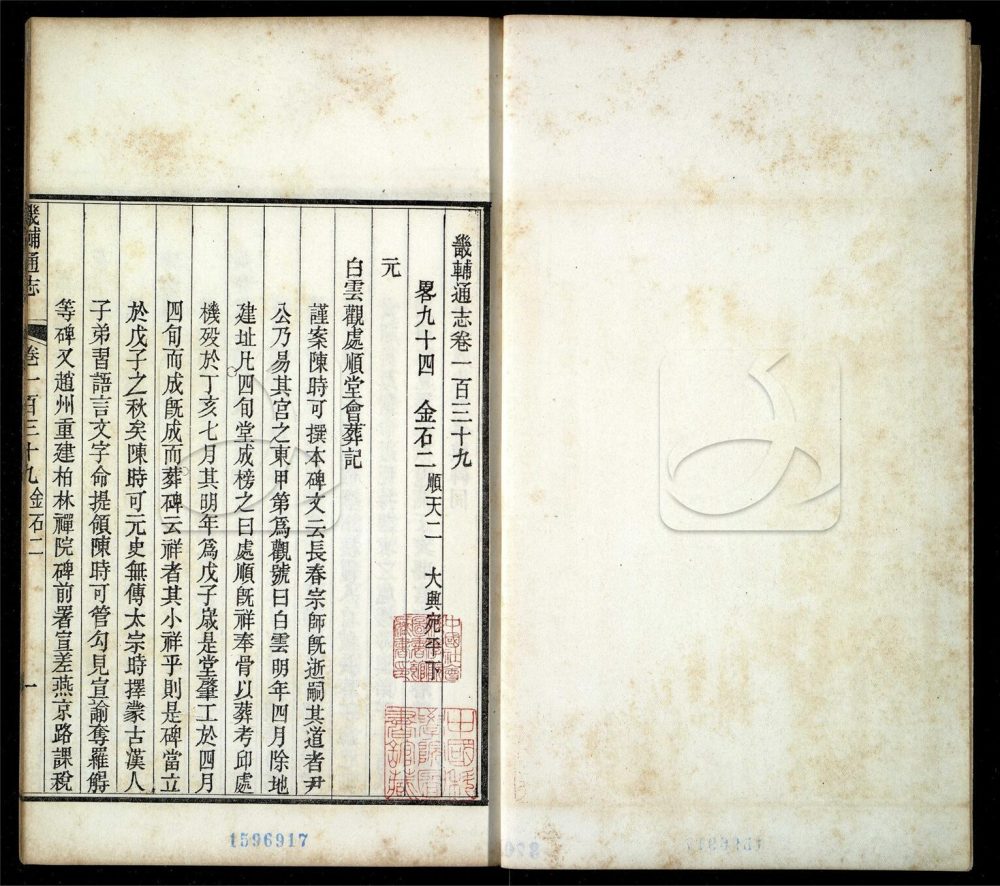 畿輔通志卷一百三十九
畧九十四　金石二　順天二　大興宛平下
元
白雲觀處順堂會葬記
謹案陳時可撰本碑文云長春宗師旣逝嗣其道者尹
公乃易其宮之東甲第爲觀號曰白雲明年四月除地
建址凡四旬堂成榜之曰處順旣祥奉骨以葬考邱處
機殁於丁亥七月其明年爲戊子歲是堂肇工於四月
四旬而成旣成而葬碑云祥者其小祥乎則是碑當立
於戊子之秋矣陳時可元史無傳太宗時擇蒙古漢人
子弟習語言文字命提領陳時可管勾見宣諭奪羅觧
等碑又趙州重建柏林禪院碑前署宣差燕京路課稅
畿輔通志
卷一百三十九
金石二
一
1596917